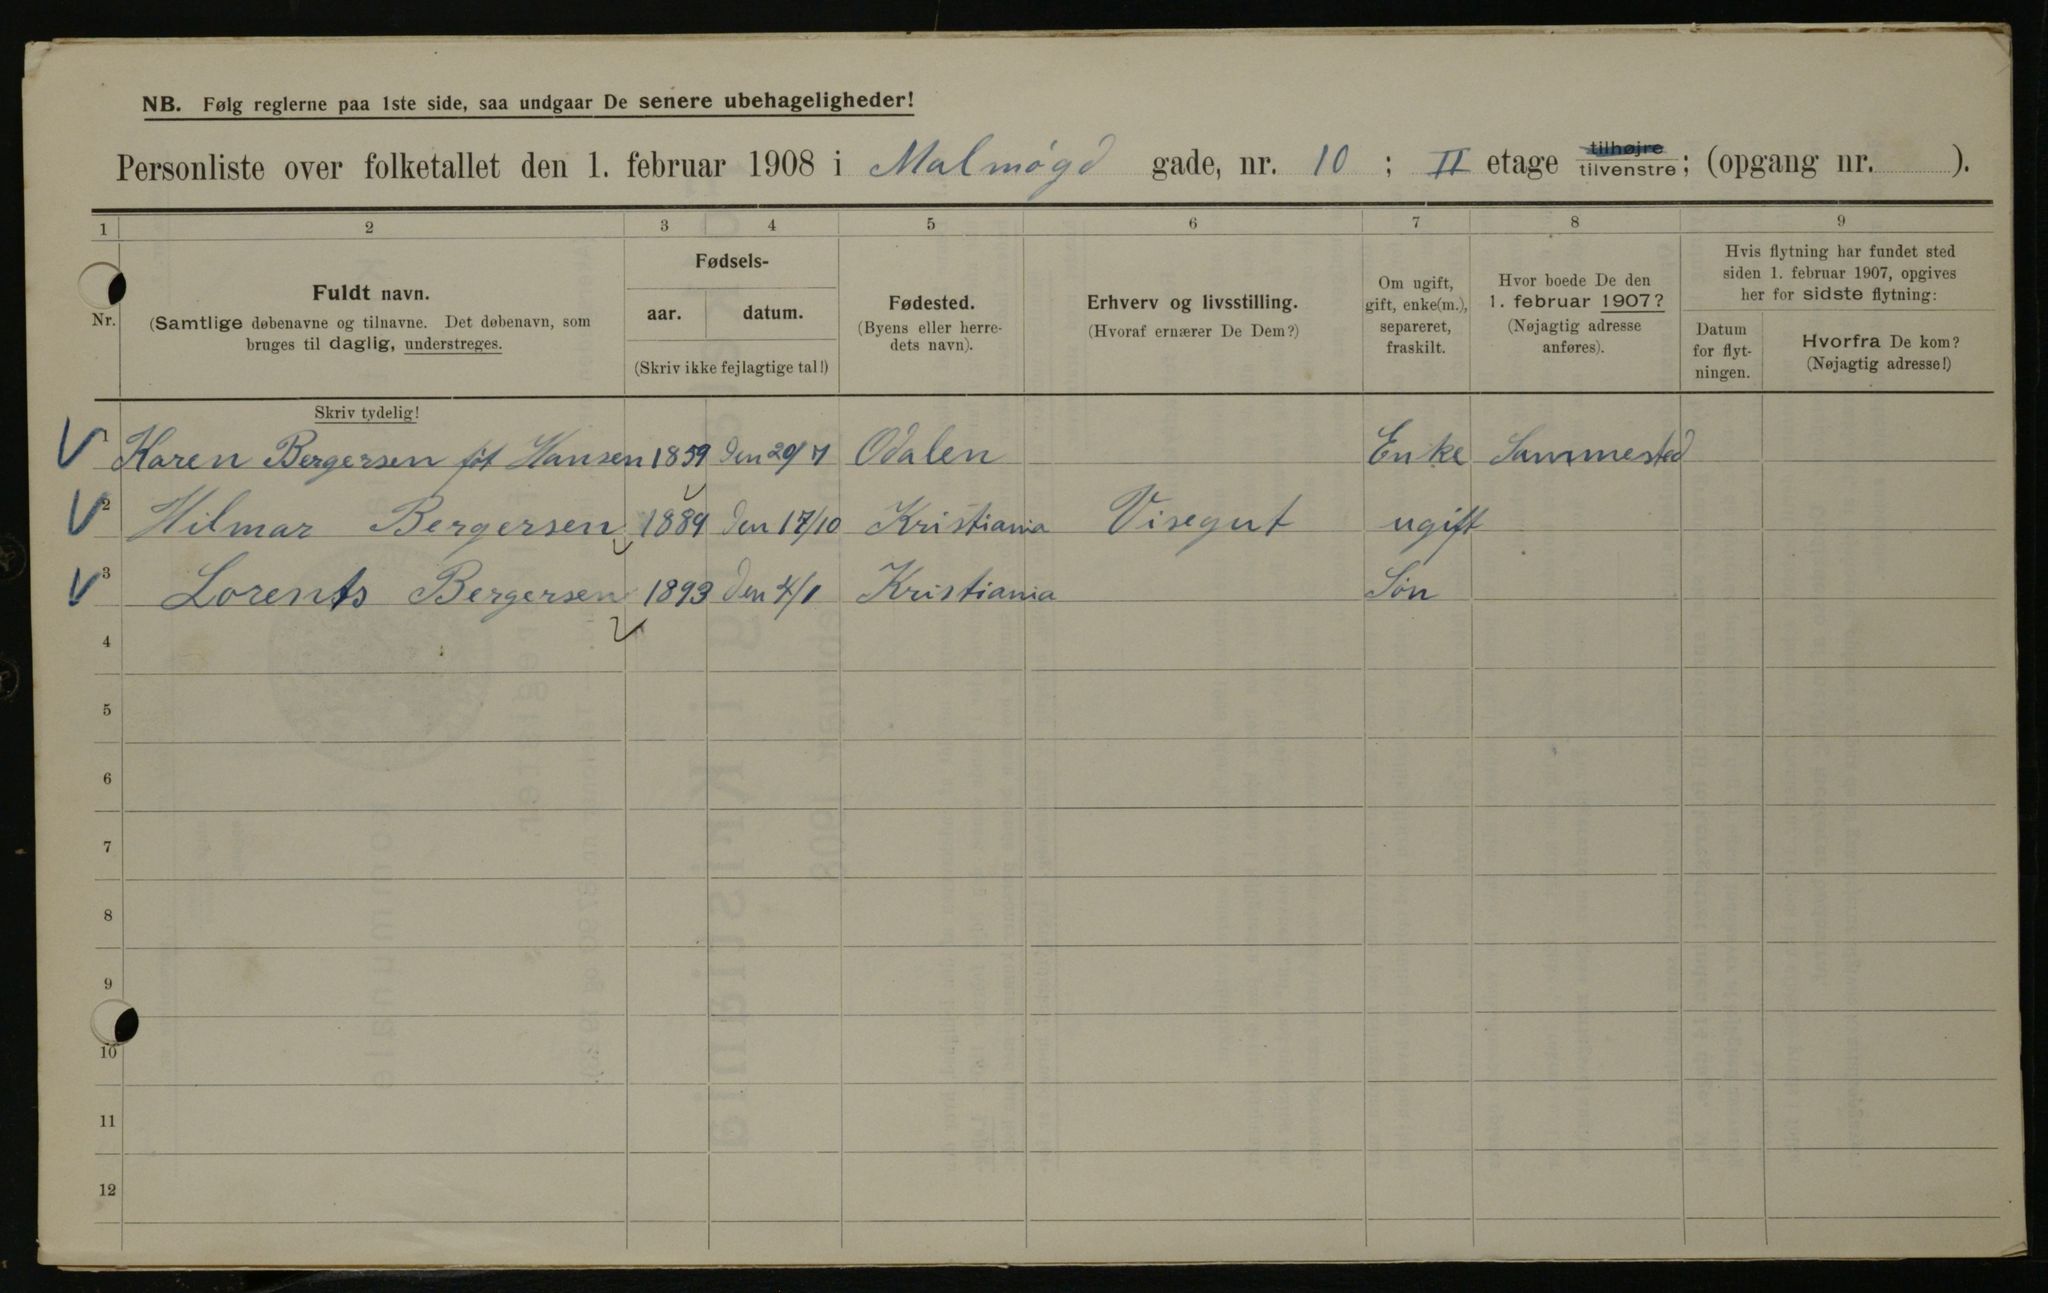 NB. Følg reglerne paa 1ste side, saa undgaar De senere ubehageligheder!
Personliste over folketallet den 1. februar 1908 i Malmøgd gade, nr. 10 ; II etage tilhøjre tilvenstre; (opgang nr. ).
1 2 3 4 5 6 7 8 9
Nr.
Fuldt navn.
(Samtlige døbenavne og tilnavne. Det døbenavn, som
bruges til daglig, understreges.
Fødsels-
aar. datum.
(Skriv ikke fejlagtige tal!)
Fødested.
(Byens eller herre-
dets navn).
Erhverv og livsstilling.
(Hvoraf ernærer De Dem?)
Om ugift,
gift, enke(m.),
separeret,
fraskilt.
Hvor boede De den
1. februar 1907?
(Nøjagtig adresse
anføres).
Hvis flytning har fundet sted
siden 1. februar 1907, opgives
her for sidste flytning:
Datum
for flyt-
ningen.
Hvorfra De kom?
(Nøjagtig adresse!)
Skriv tydelig!
1 Karen Bergersen føt Hansen 1859 den 20/7 Odalen Enke Sammested
2 Hilmar Bergersen 1889 den 17/10 Kristiania Visegut ugift
3 Lorents Bergersen 1893 den 4/1 Kristiania Søn
4
5
6
7
8
9
10
11
12